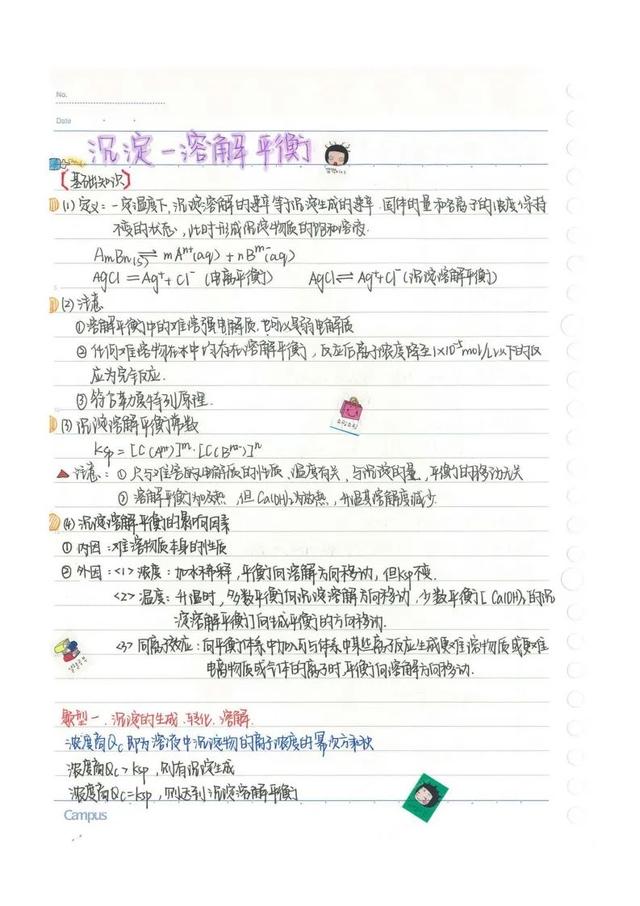 No.
Date
沉淀-溶解平衡
【基础知识】
(1) 定义：一定温度下，沉淀溶解的速率等于沉淀生成的速率，固体的量和各离子的浓度保持
不变的状态，此时形成沉淀物质的饱和溶液.
AmBn(s) ⇌ mAⁿ⁺(aq) + nBᵐ⁻(aq)
AgCl = Ag⁺ + Cl⁻ (电离平衡) AgCl ⇌ Ag⁺ + Cl⁻ (沉淀溶解平衡)
(2) 注意
①溶解平衡中的难溶强电解质，也可以是弱电解质
②任何难溶物在水中均存在溶解平衡，反应后离子浓度降至1×10⁻⁵mol/L以下的反
应为完全反应.
③符合勒夏特列原理.
(3) 沉淀溶解平衡常数
Ksp = [C(Aⁿ⁺)]ᵐ·[C(Bᵐ⁻)]ⁿ
注意：①只与难溶的电解质的性质、温度有关，与沉淀的量，平衡的移动无关
②溶解平衡为吸热，但Ca(OH)₂为放热，升温其溶解度减少.
(4) 沉淀溶解平衡的影响因素
①内因：难溶物质本身的性质
②外因：<1>浓度：加水稀释，平衡向溶解方向移动，但Ksp不变.
<2>温度：升温时，多数平衡向沉淀溶解方向移动，少数平衡[Ca(OH)₂的沉
淀溶解平衡]向生成平衡的方向移动.
<3>同离子效应：向平衡体系中加入可与体系中某些离子反应生成更难溶物质或更难
电离物质或气体的离子时平衡向溶解方向移动.
题型一. 沉淀的生成.转化.溶解.
浓度商Qc即为溶液中沉淀物的离子浓度的幂次方乘积
浓度商Qc>Ksp，则有沉淀生成
浓度商Qc=Ksp，则达到沉淀溶解平衡
Campus